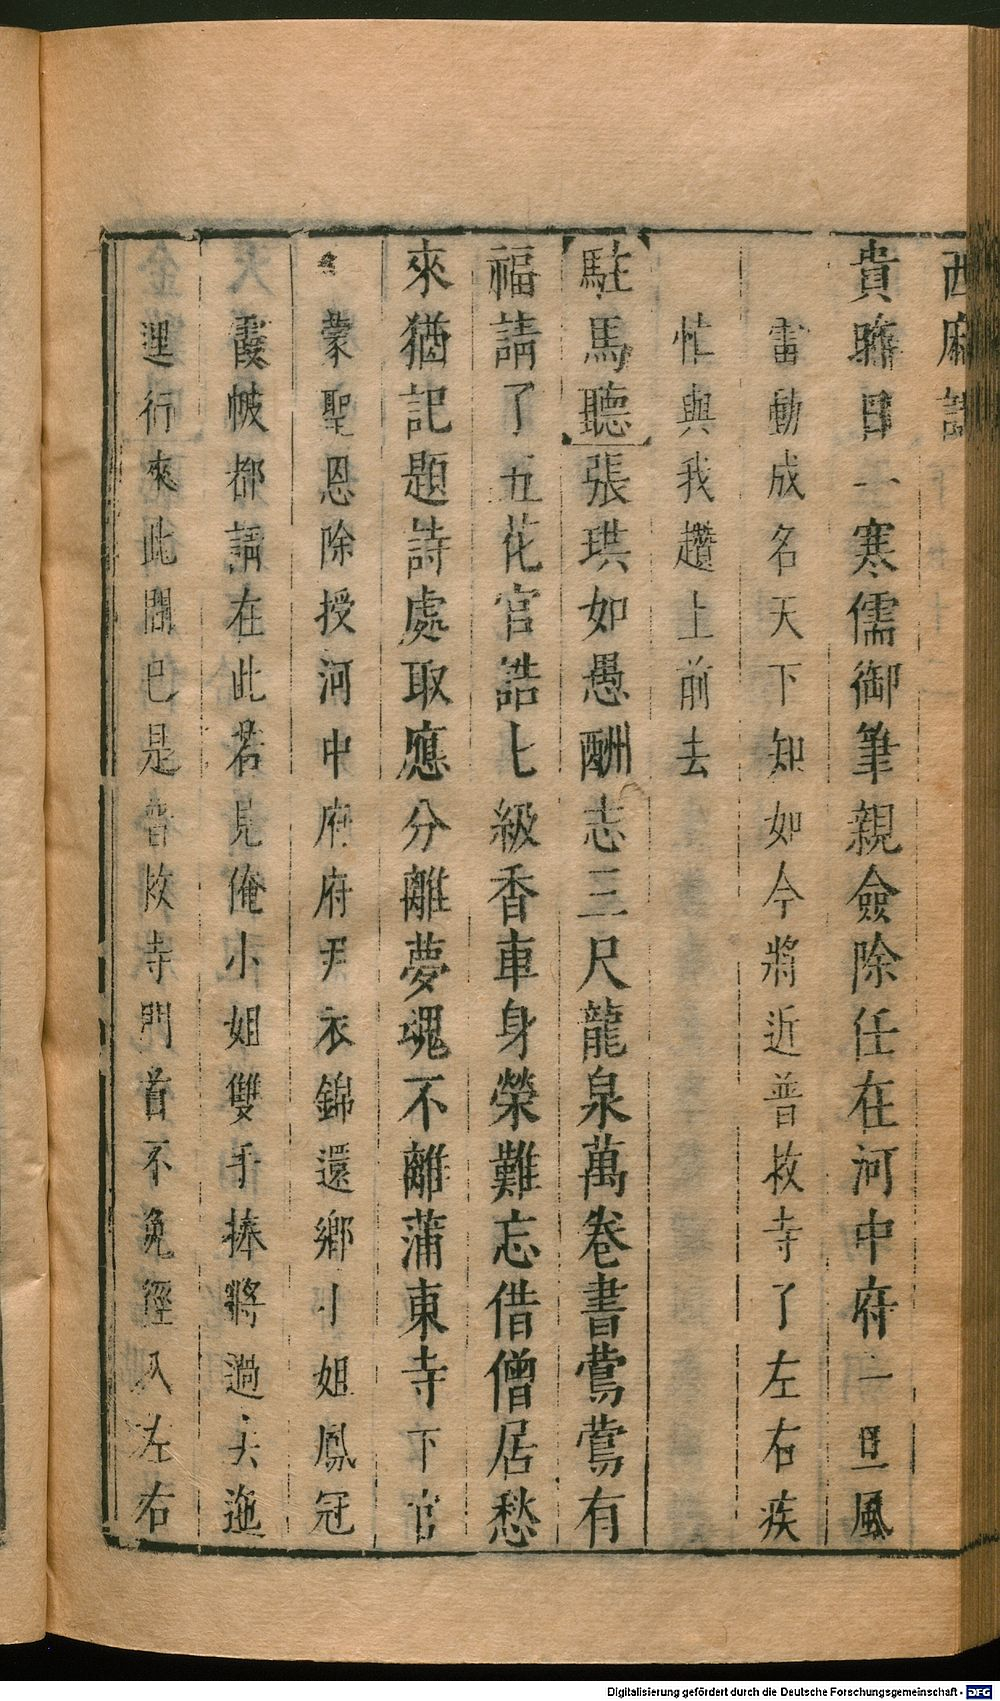 西廂記
貴聯日一寒儒御筆親僉除任在河中府一旦風
雷動成名天下知如今將近普救寺了左右疾
忙與我趲上前去
駐馬聽張珙如愚酬志三尺龍泉萬卷書鶯鶯有
福請了五花官誥七級香車身榮難忘借僧居愁
來猶記題詩處取應分離夢魂不離蒲東寺下官
蒙聖恩除授河中府府尹衣錦還鄉小姐鳳冠
霞帔都請在此若見俺小姐雙手捧將過去迤
逞行來此間已是普救寺門首不免徑入左右
Digitalisierung gefördert durch die Deutsche Forschungsgemeinschaft - DFG